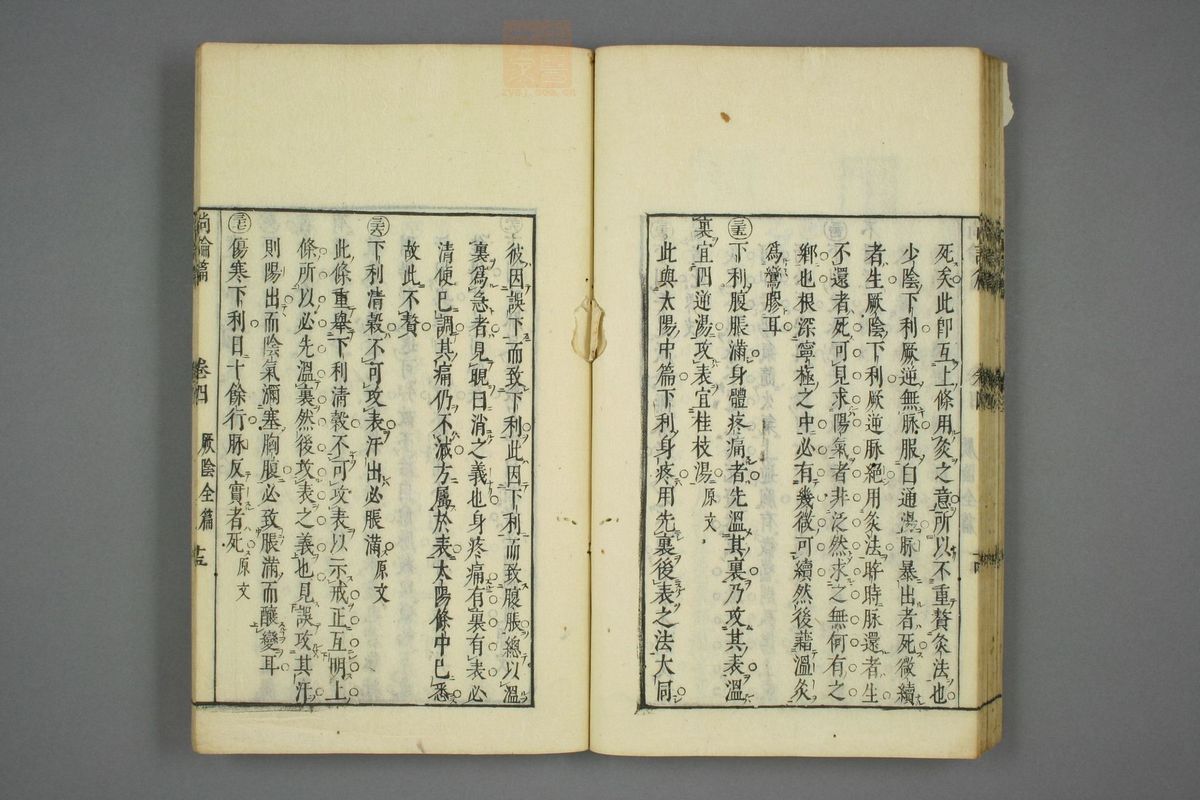 死矣此即互上條用灸之意所以不重贅灸法也
少陰下利厥逆無脉服白通湯脉暴出者死微續
者生厥陰下利厥逆脉絕用灸法晬時脉還者生
不還者死可見求陽氣者非泛然求之無何有之
鄉也根深寧極之中必有幾微可續然後藉溫灸
為鸞膠耳
三五
下利腹脹滿身體疼痛者先溫其裏乃攻其表溫
裏宜四逆湯攻表宜桂枝湯原文
此與太陽中篇下利身疼用先裏後表之法大同
彼因誤下而致下利此因下利而致腹脹總以溫
裏為急者見晛曰消之義也身疼痛有裏有表必
清便已調其痛仍不減方屬於表太陽條中已悉
故此不贅
三六
下利清穀不可攻表汗出必脹滿原文
此條重舉下利清穀不可攻表以示戒正互明上
條所以必先溫裏然後攻表之義也見誤攻其汗
則陽出而陰氣瀰塞胸腹必致脹滿而釀變耳
三七
傷寒下利日十餘行脉反實者死原文
尚論篇 卷四 厥陰全篇 十五